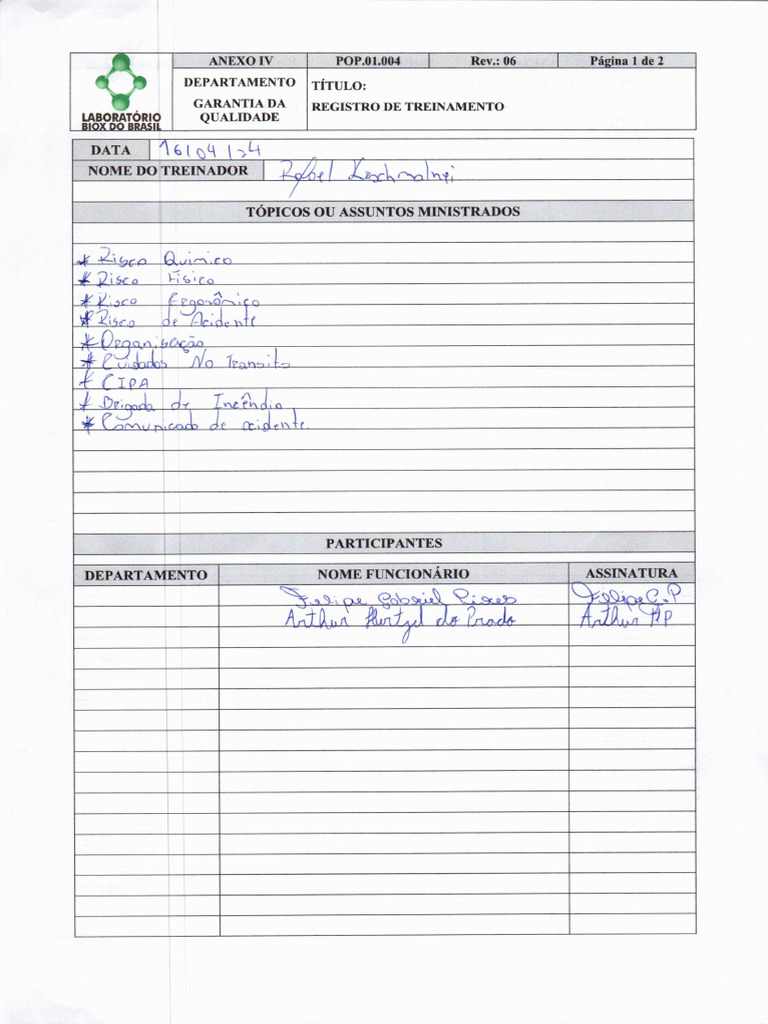 LABORATÓRIO
BIOX DO BRASIL
ANEXO IV POP.01.004 Rev.: 06 Página 1 de 2
DEPARTAMENTO
GARANTIA DA
QUALIDADE
TÍTULO:
REGISTRO DE TREINAMENTO
DATA 16/04/24
NOME DO TREINADOR Rafael
TÓPICOS OU ASSUNTOS MINISTRADOS
* Risco Químico
* Risco Físico
* Risco Ergonômico
* Risco de Acidente
* Organização
* Cuidados No Transito
* CIPA
* Brigada de Incêndio
* Comunicado de acidente.
PARTICIPANTES
DEPARTAMENTO NOME FUNCIONÁRIO ASSINATURA
Felipe Gabriel Pires Felipe G.P
Arthur Hertzel do Prado Arthur HP